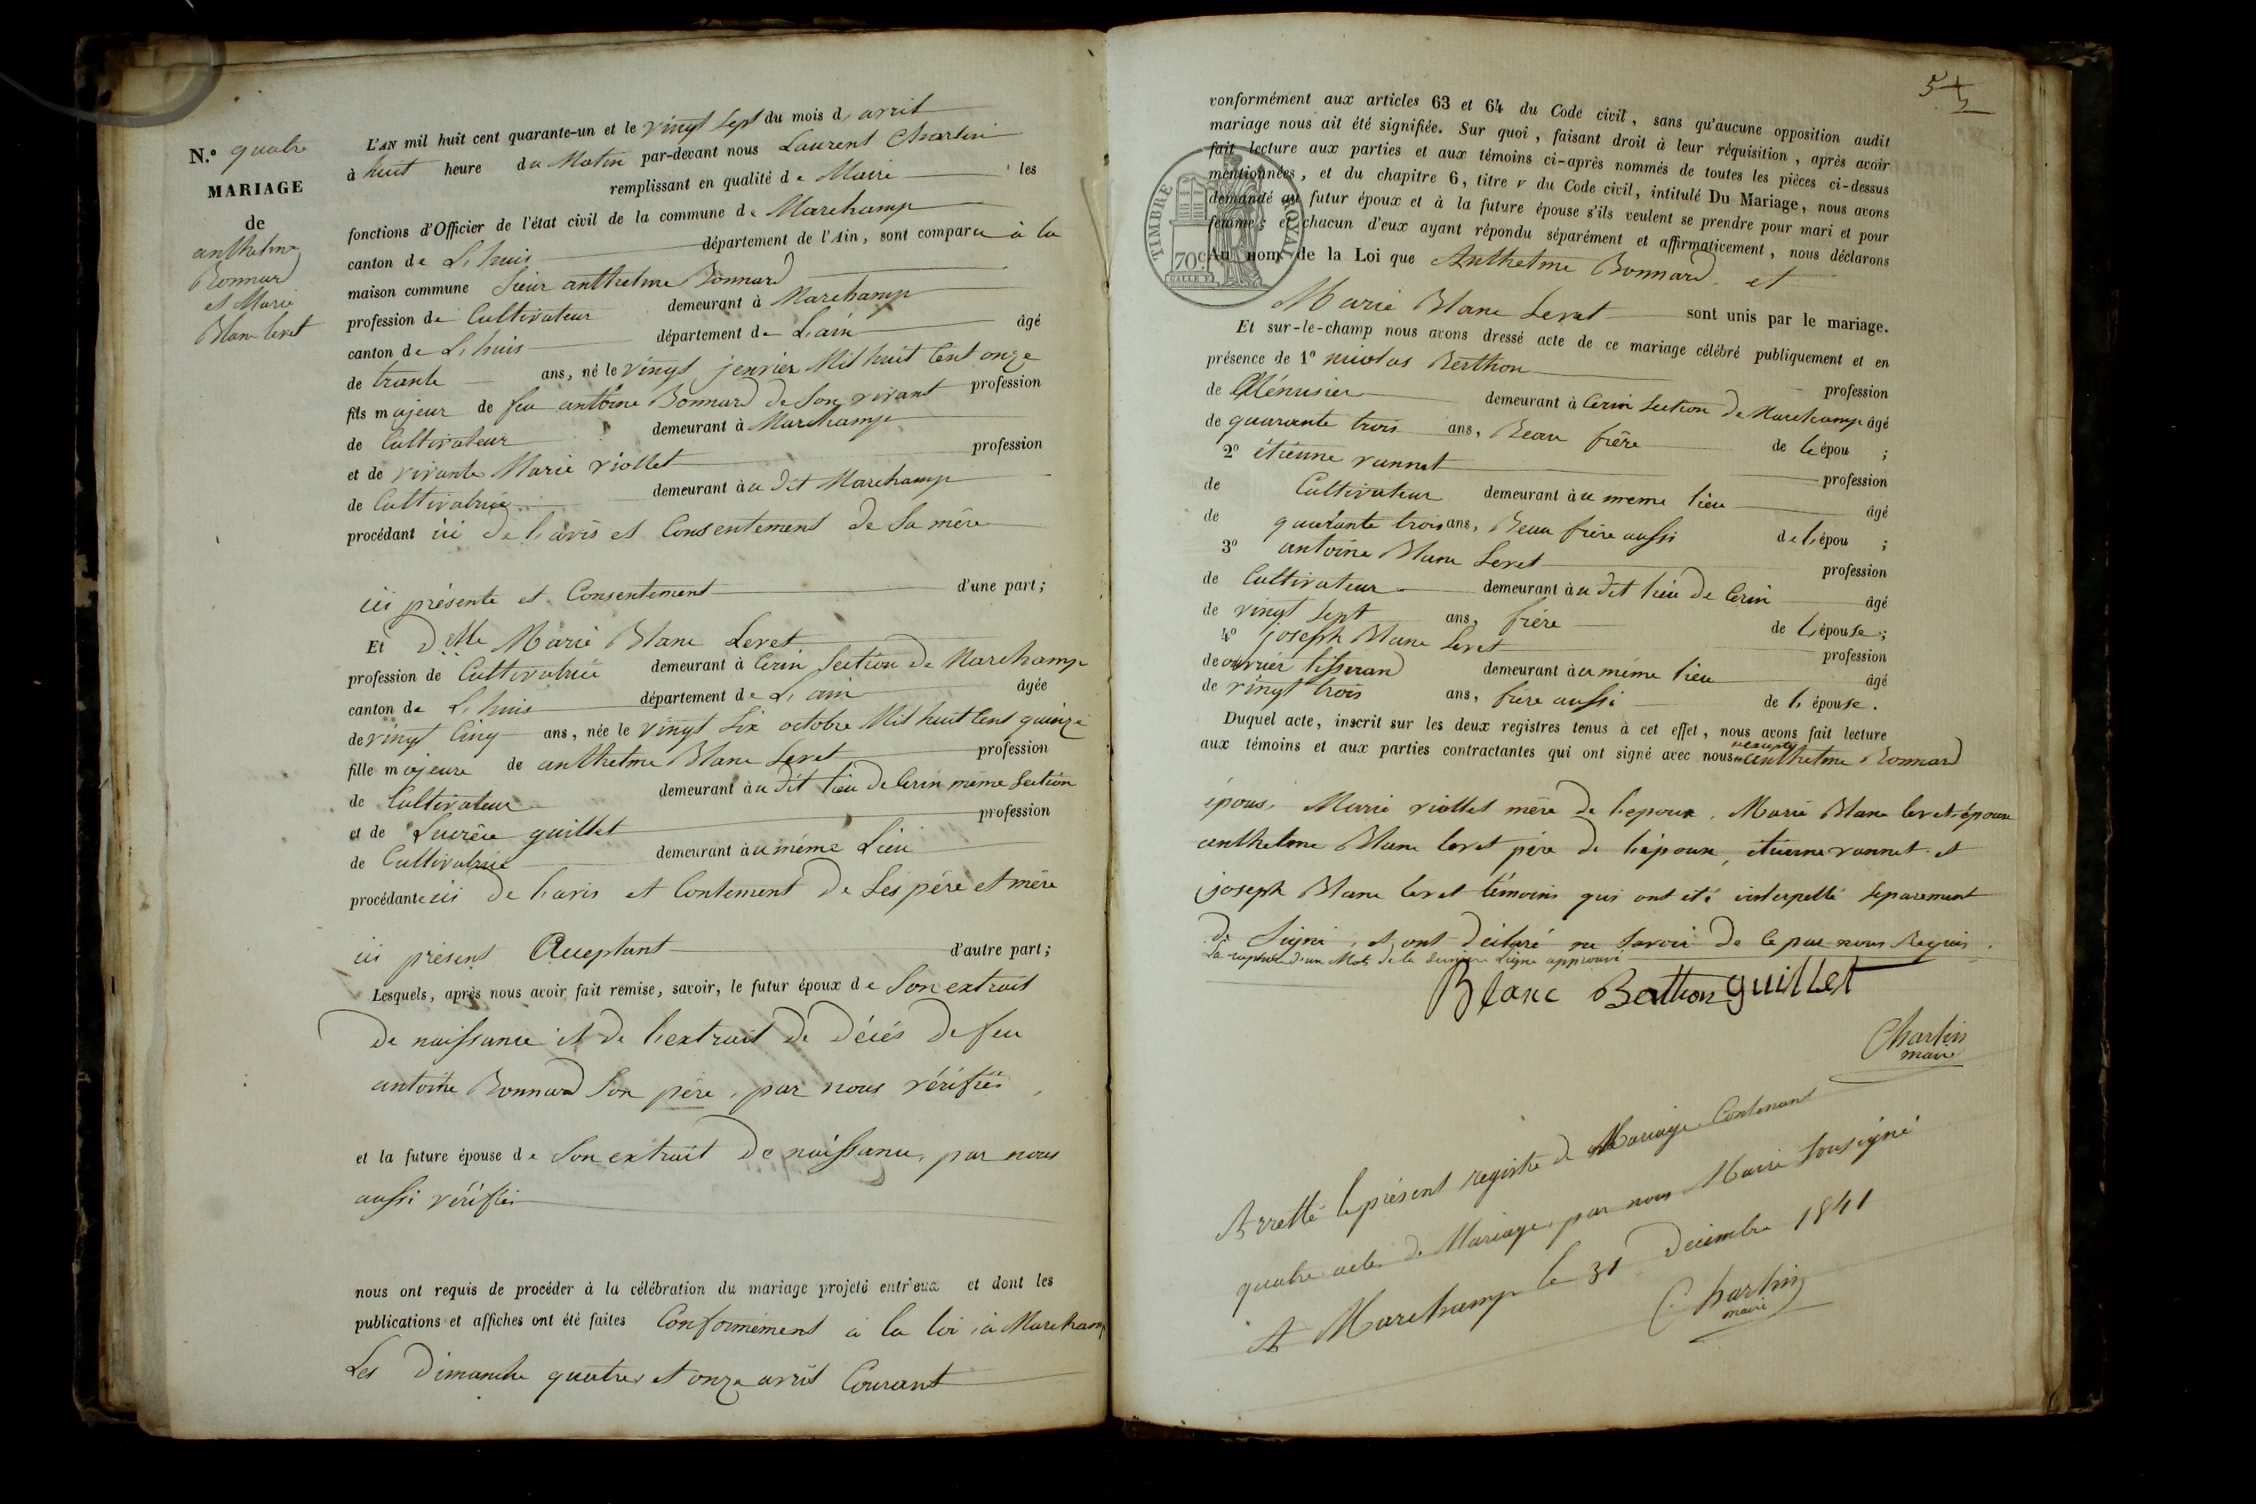 N.° quatre
MARIAGE
de
anthelme
Bonnard
et Marie
Blanc Levet
L'AN mil huit cent quarante-un et le vingt sept du mois d'avril
à huit heure du Matin par-devant nous Laurent Charlin
remplissant en qualité de Maire les
fonctions d'Officier de l'état civil de la commune de Marchamp
canton de L'huis département de l'Ain, sont comparu à la
maison commune Sieur anthelme Bonnard
profession de Cultivateur demeurant à Marchamp
canton de L'huis département de L'ain âgé
de trante ans, né le vingt jenvier Mil huit Cent onze
fils majeur de feu antoine Bonnard de Son vivant profession
de Cultivateur demeurant à Marchamp
et de vivante Marie viollet profession
de Cultivatrice demeurant à u dit Marchamp
procédant ici de l'avis et Consentement de Sa mère
ici présente et Consentement d'une part;
Et Delle Marie Blanc Levet
profession de Cultivatrice demeurant à Cerin Section de Marchamp
canton de L'huis département de L'ain âgée
de vingt Cinq ans, née le vingt Six octobre Mil huit Cent quinze
fille majeure de anthelme Blanc Levet profession
de Cultivateur demeurant à u dit lieu de Cerin même Section
et de Lucrèce guillet profession
de Cultivatrice demeurant à u même Lieu
procédante ici de l'avis et Contement de Ses père et mère
ici présent Acceptant d'autre part;
Lesquels, après nous avoir fait remise, savoir, le futur époux de Son extrait
de naissance et de l'extrait de décés de feu
antoine Bonnard Son père, par nous vérifiés
et la future épouse de Son extrait de naissance, par nous
aussi vérifiés
nous ont requis de procéder à la célébration du mariage projeté entr'eux et dont les
publications et affiches ont été faites Conformément à la loi, à Marchamp
Les Dimanche quatre et onze avril Courant
54
conformément aux articles 63 et 64 du Code civil, sans qu'aucune opposition audit
mariage nous ait été signifiée. Sur quoi, faisant droit à leur réquisition, après avoir
fait lecture aux parties et aux témoins ci-après nommés de toutes les pièces ci-dessus
mentionnées, et du chapitre 6, titre v du Code civil, intitulé Du Mariage, nous avons
demandé au futur époux et à la future épouse s'ils veulent se prendre pour mari et pour
femme; et chacun d'eux ayant répondu séparément et affirmativement, nous déclarons
TIMBRE ROYAL
70c
Au nom de la Loi que Anthelme Bonnard et
Marie Blanc Levet sont unis par le mariage.
Et sur-le-champ nous avons dressé acte de ce mariage célébré publiquement et en
présence de 1° nicolas Berthon profession
de Ménusier demeurant à Cerin Section de Marchamp âgé
de quarante trois ans, Beau frère de l'épou ;
2° étienne vannet profession
de Cultivateur demeurant à u meme lieu âgé
de quarante trois ans, Beau frère aussi de l'épou ;
3° antoine Blanc Levet profession
de Cultivateur demeurant à u dit lieu de Cerin âgé
de vingt Sept ans, frère de l'épouse;
4° joseph Blanc Levet profession
de ouvrier tisserand demeurant à u même lieu âgé
de vingt trois ans, frère aussi de l'épouse.
Duquel acte, inscrit sur les deux registres tenus à cet effet, nous avons fait lecture
aux témoins et aux parties contractantes qui ont signé avec nous excepté anthelme Bonnard
époux, Marie viollet mère de l'epoux, Marie Blanc levet épouse
anthelme Blanc levet père de l'épouse, etienne vannet et
joseph Blanc levet témoins qui ont été interpellé separement
de Signé, et ont déclaré ne Savoir de Ce par nous Requis.
La rupture d'un Mot de la dernière Ligne approuvé
Blanc Berthon guillet
Charlin
maire
Arretté le présent registre de Mariage Contenant
quatre actes de Mariage, par nous Maire Sousigné
A Marchamp le 31 Decembre 1841
Charlin
maire